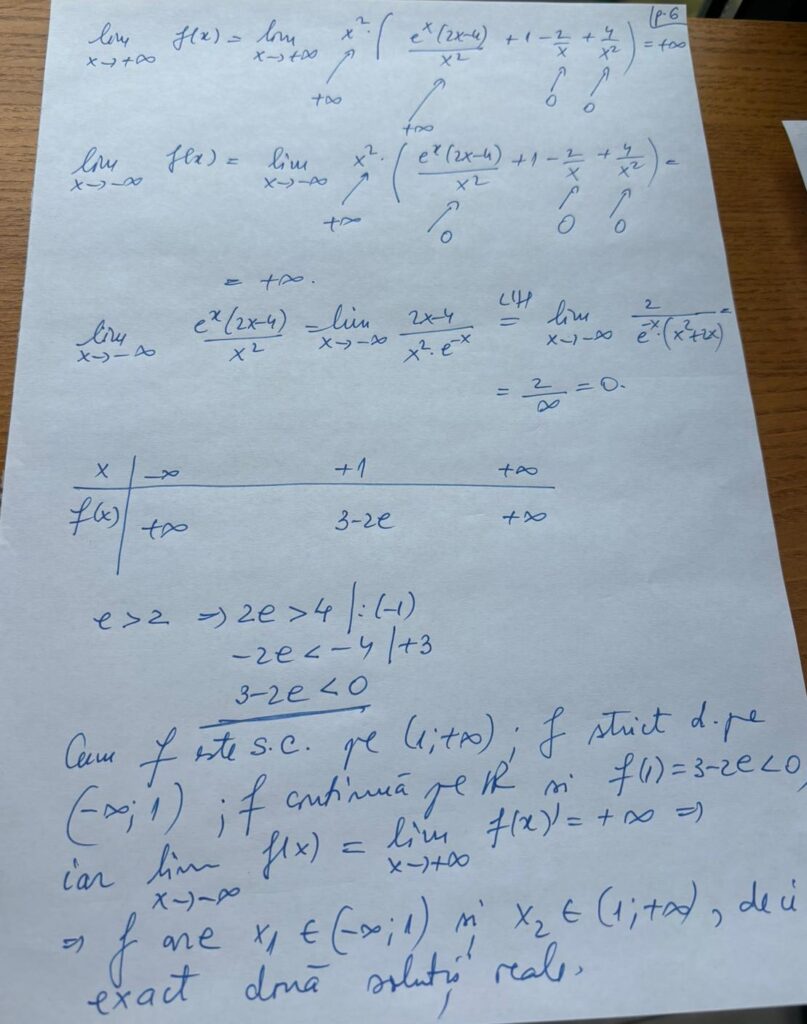 (p.6
lim x→+∞ f(x) = lim x→+∞ x² · ( e^x(2x-4)/x² + 1 - 2/x + 4/x² ) = +∞
+∞ +∞ 0 0
lim x→-∞ f(x) = lim x→-∞ x² · ( e^x(2x-4)/x² + 1 - 2/x + 4/x² ) =
+∞ 0 0 0
= +∞.
lim x→-∞ e^x(2x-4)/x² = lim x→-∞ 2x-4/x²·e^-x L'H = lim x→-∞ 2/e^-x·(x²+2x) =
= 2/∞ = 0.
x | -∞ +1 +∞
f(x) | +∞ 3-2e +∞
e > 2 ⇒ 2e > 4 |:(-1)
-2e < -4 |+3
3-2e < 0
Cum f este s.c. pe (1;+∞); f strict d. pe
(-∞;1); f continuă pe ℝ și f(1) = 3-2e < 0,
iar lim x→-∞ f(x) = lim x→+∞ f(x) = +∞ ⇒
⇒ f are x₁ ∈ (-∞;1) și x₂ ∈ (1;+∞), deci
exact două soluții reale.